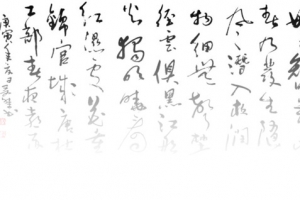 春乃發生隨
風潛入夜潤
物細無聲野
徑雲俱黑江船
火獨明曉看
紅濕處花重
錦官城唐杜
工部春夜喜雨